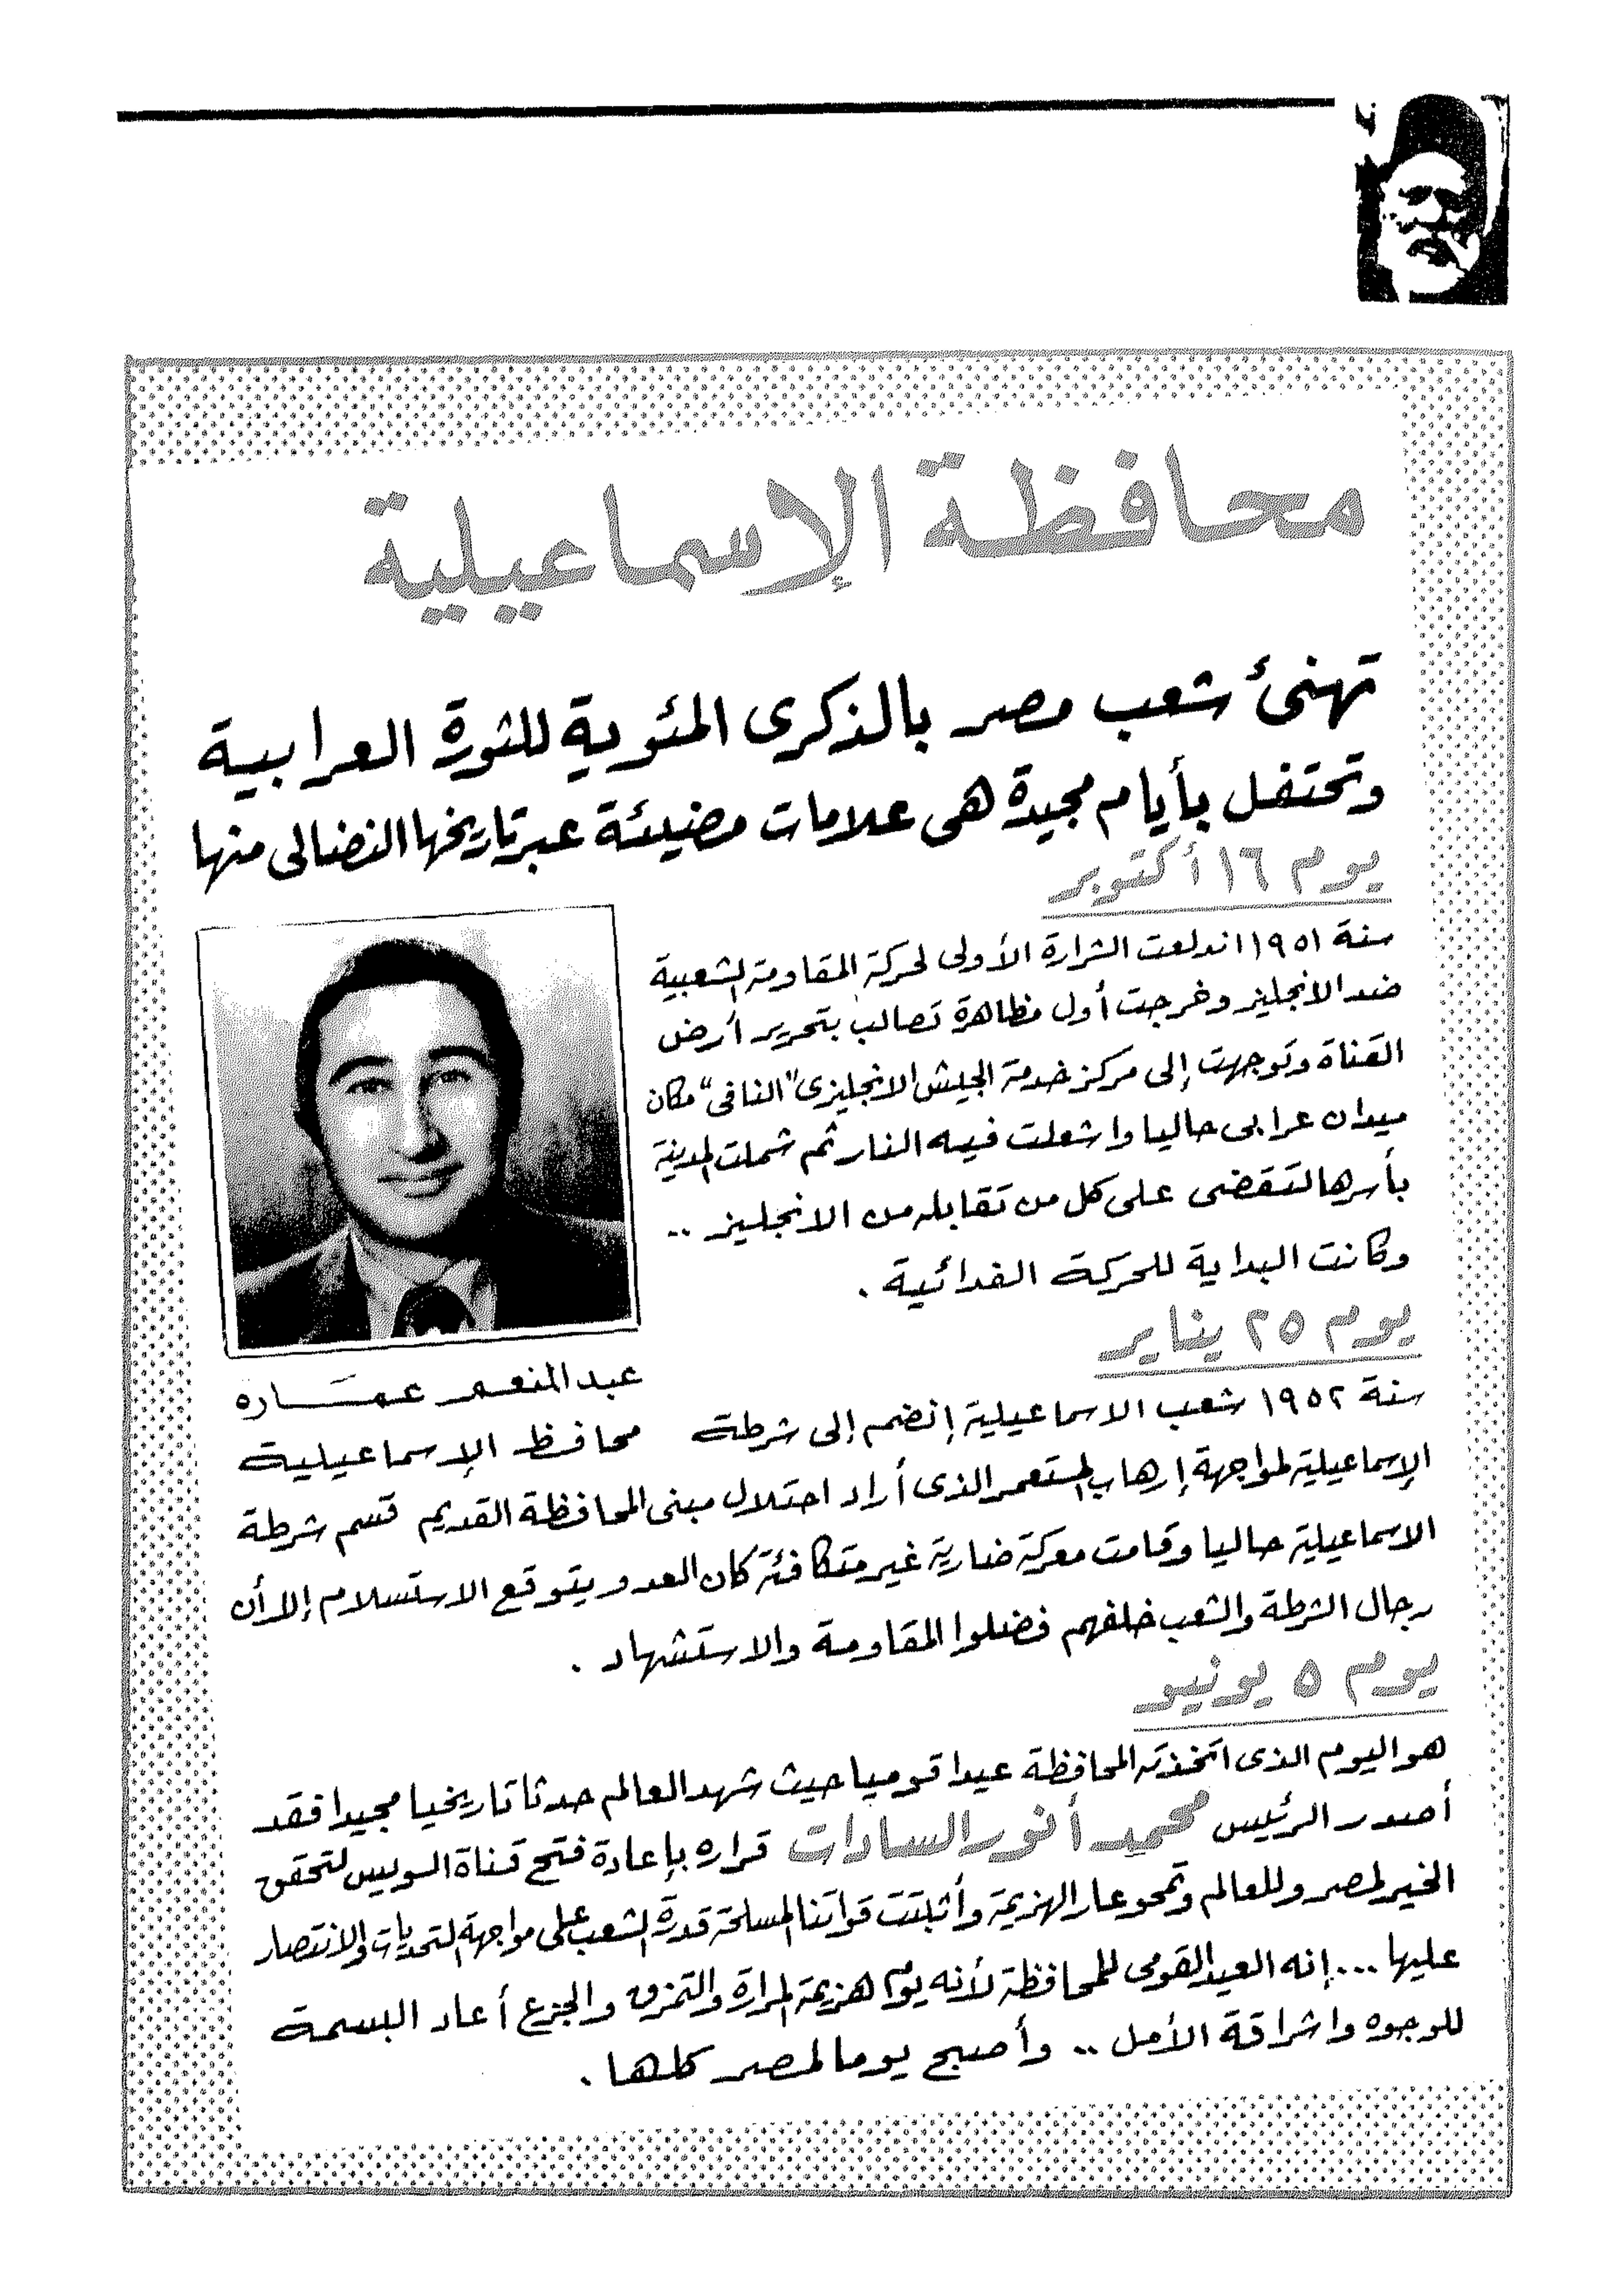 محافظة الإسماعيلية
تهنئ شعب مصر بالذكرى المئوية للثورة العرابية
وتحتفل بأيام مجيدة هى علامات مضيئة عبر تاريخها النضالى منها
يوم ١٦ أكتوبر
سنة ١٩٥١ اندلعت الشرارة الأولى لحركة المقاومة الشعبية
ضد الانجليز وخرجت أول مظاهرة تصالب بتحرير أرض
القناة وتوجهت إلى مركز خدمة الجيش الانجليزى "النافى" مكان
ميدان عرابى حاليا واشعلت فيه النار ثم شملت المدينة
بأسرها لتقضى على كل من تقابله من الانجليز ..
وكانت البداية للحركة الفدائية .
عبد المنعم عمَـــاره
محافظ الإسماعيلية
يوم ٢٥ يناير
سنة ١٩٥٢ شعب الاسماعيلية إنضم إلى شرطة
الإسماعيلية لمواجهة إرهاب المستعمر الذى أراد احتلال مبنى المحافظة القديم قسم شرطة
الاسماعيلية حاليا وقامت معركة ضارية غير متكافئة كان العدو يتوقع الاستسلام إلا أن
رجال الشرطة والشعب خلفهم فضلوا المقاومة والاستشهاد .
يوم ٥ يونيو
هو اليوم الذى اتخذته المحافظة عيدا قوميا حيث شهد العالم حدثا تاريخيا مجيدا فقد
أصدر الرئيس محمد أنور السادات قراره بإعادة فتح قناة السويس لتحقق
الخير لمصر وللعالم وتمحو عار الهزيمة وأثبتت قواتنا المسلحة قدرة الشعب على مواجهة التحديات والانتصار
عليها ... إنه العيد القومى للمحافظة لأنه يوم هزيمة المرارة والتمزق والجزع أعاد البسمة
للوجوه واشراقة الأمل .. وأصبح يوما لمصر كلها .